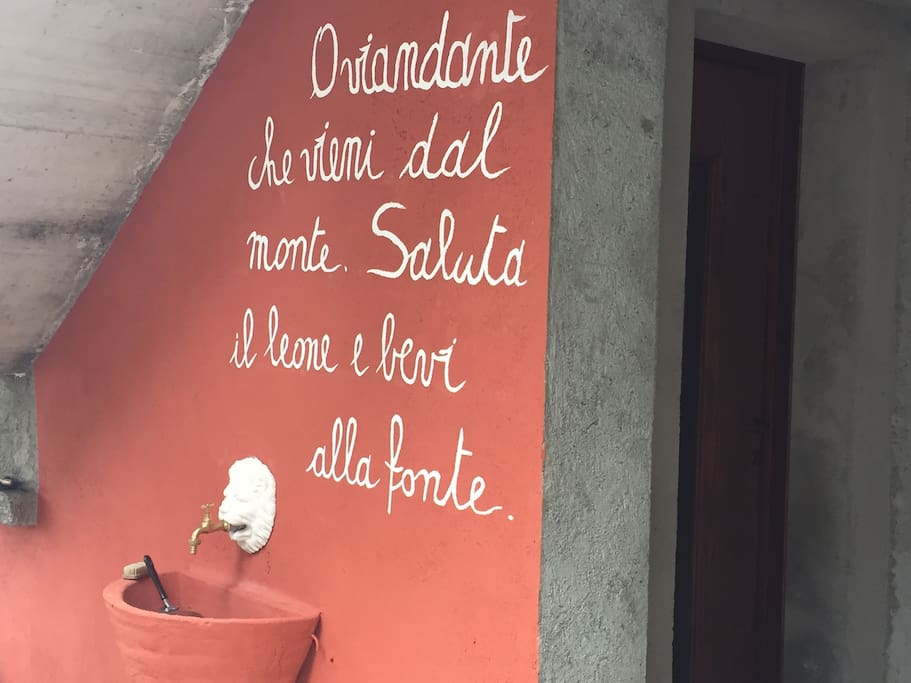 O viandante
che vieni dal
monte. Saluta
il leone e bevi
alla fonte.